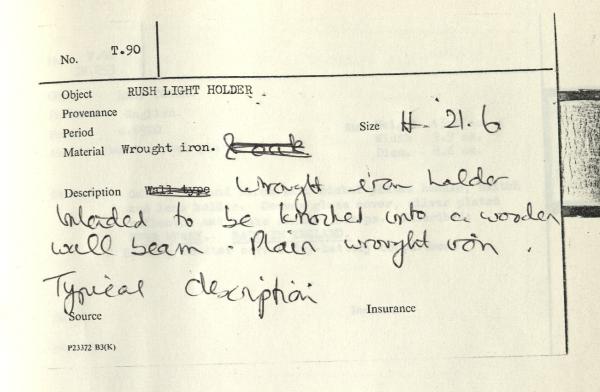 No. T.90
Object RUSH LIGHT HOLDER .
Provenance
Period
Size H. 21.6
Material Wrought iron. & oak
Description Wall type Wrought iron holder
intended to be knocked into a wooden
wall beam. Plain wrought iron.
Typical description
Source
Insurance
P23372 B3(K)